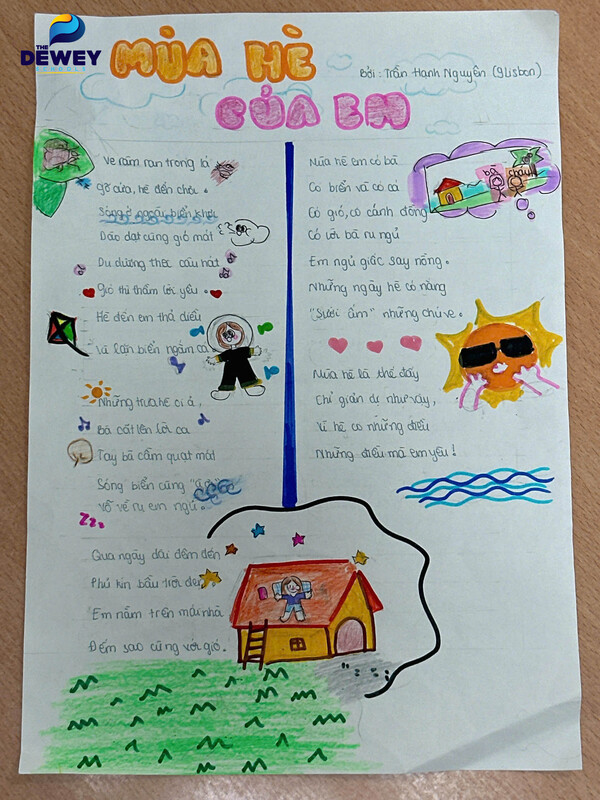 THE
DEWEY
MÙA HÈ
CỦA EM
Bởi: Trần Hạnh Nguyên (9Lisbon)
Ve râm ran trong lá
Gõ cửa, hè đến chơi.
Sóng ở ngoài biển khơi
Dào dạt cùng gió mát
Du dương theo câu hát
Gió thì thầm lời yêu.
Hè đến em thả diều
Và lặn biển ngắm cá
Những trưa hè ơi ả,
Bà cất lên lời ca
Tay bà cầm quạt mát
Sóng biển cũng
vỗ về ru em ngủ.
Zzz
Qua ngày dài đêm đến
Phủ kín bầu trời đen
Em nằm trên mái nhà
Đếm sao cùng với gió.
Mùa hè em có bà
Có biển và có cá
Có gió, có cánh đồng
Có lời bà ru ngủ
Em ngủ giấc say nồng.
Những ngày hè có nắng
"Sưởi ấm" những chú ve.
Mùa hè là thế đấy
Chỉ giản dị như vậy,
Vì hè có những điều
Những điều mà em yêu!
bà
cháu